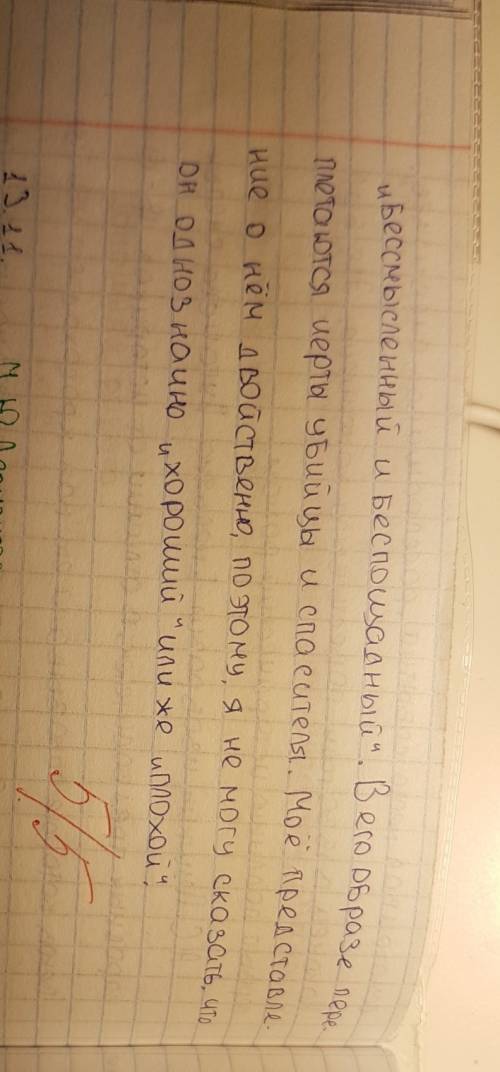 „Бессмысленный и беспощадный“. В его образе пере-
плетаются черты убийцы и спасителя. Моё представле-
ние о нём двойственно, поэтому, я не могу сказать, что
он однозначно „хороший“ или же „плохой“.
5/5
13.11.